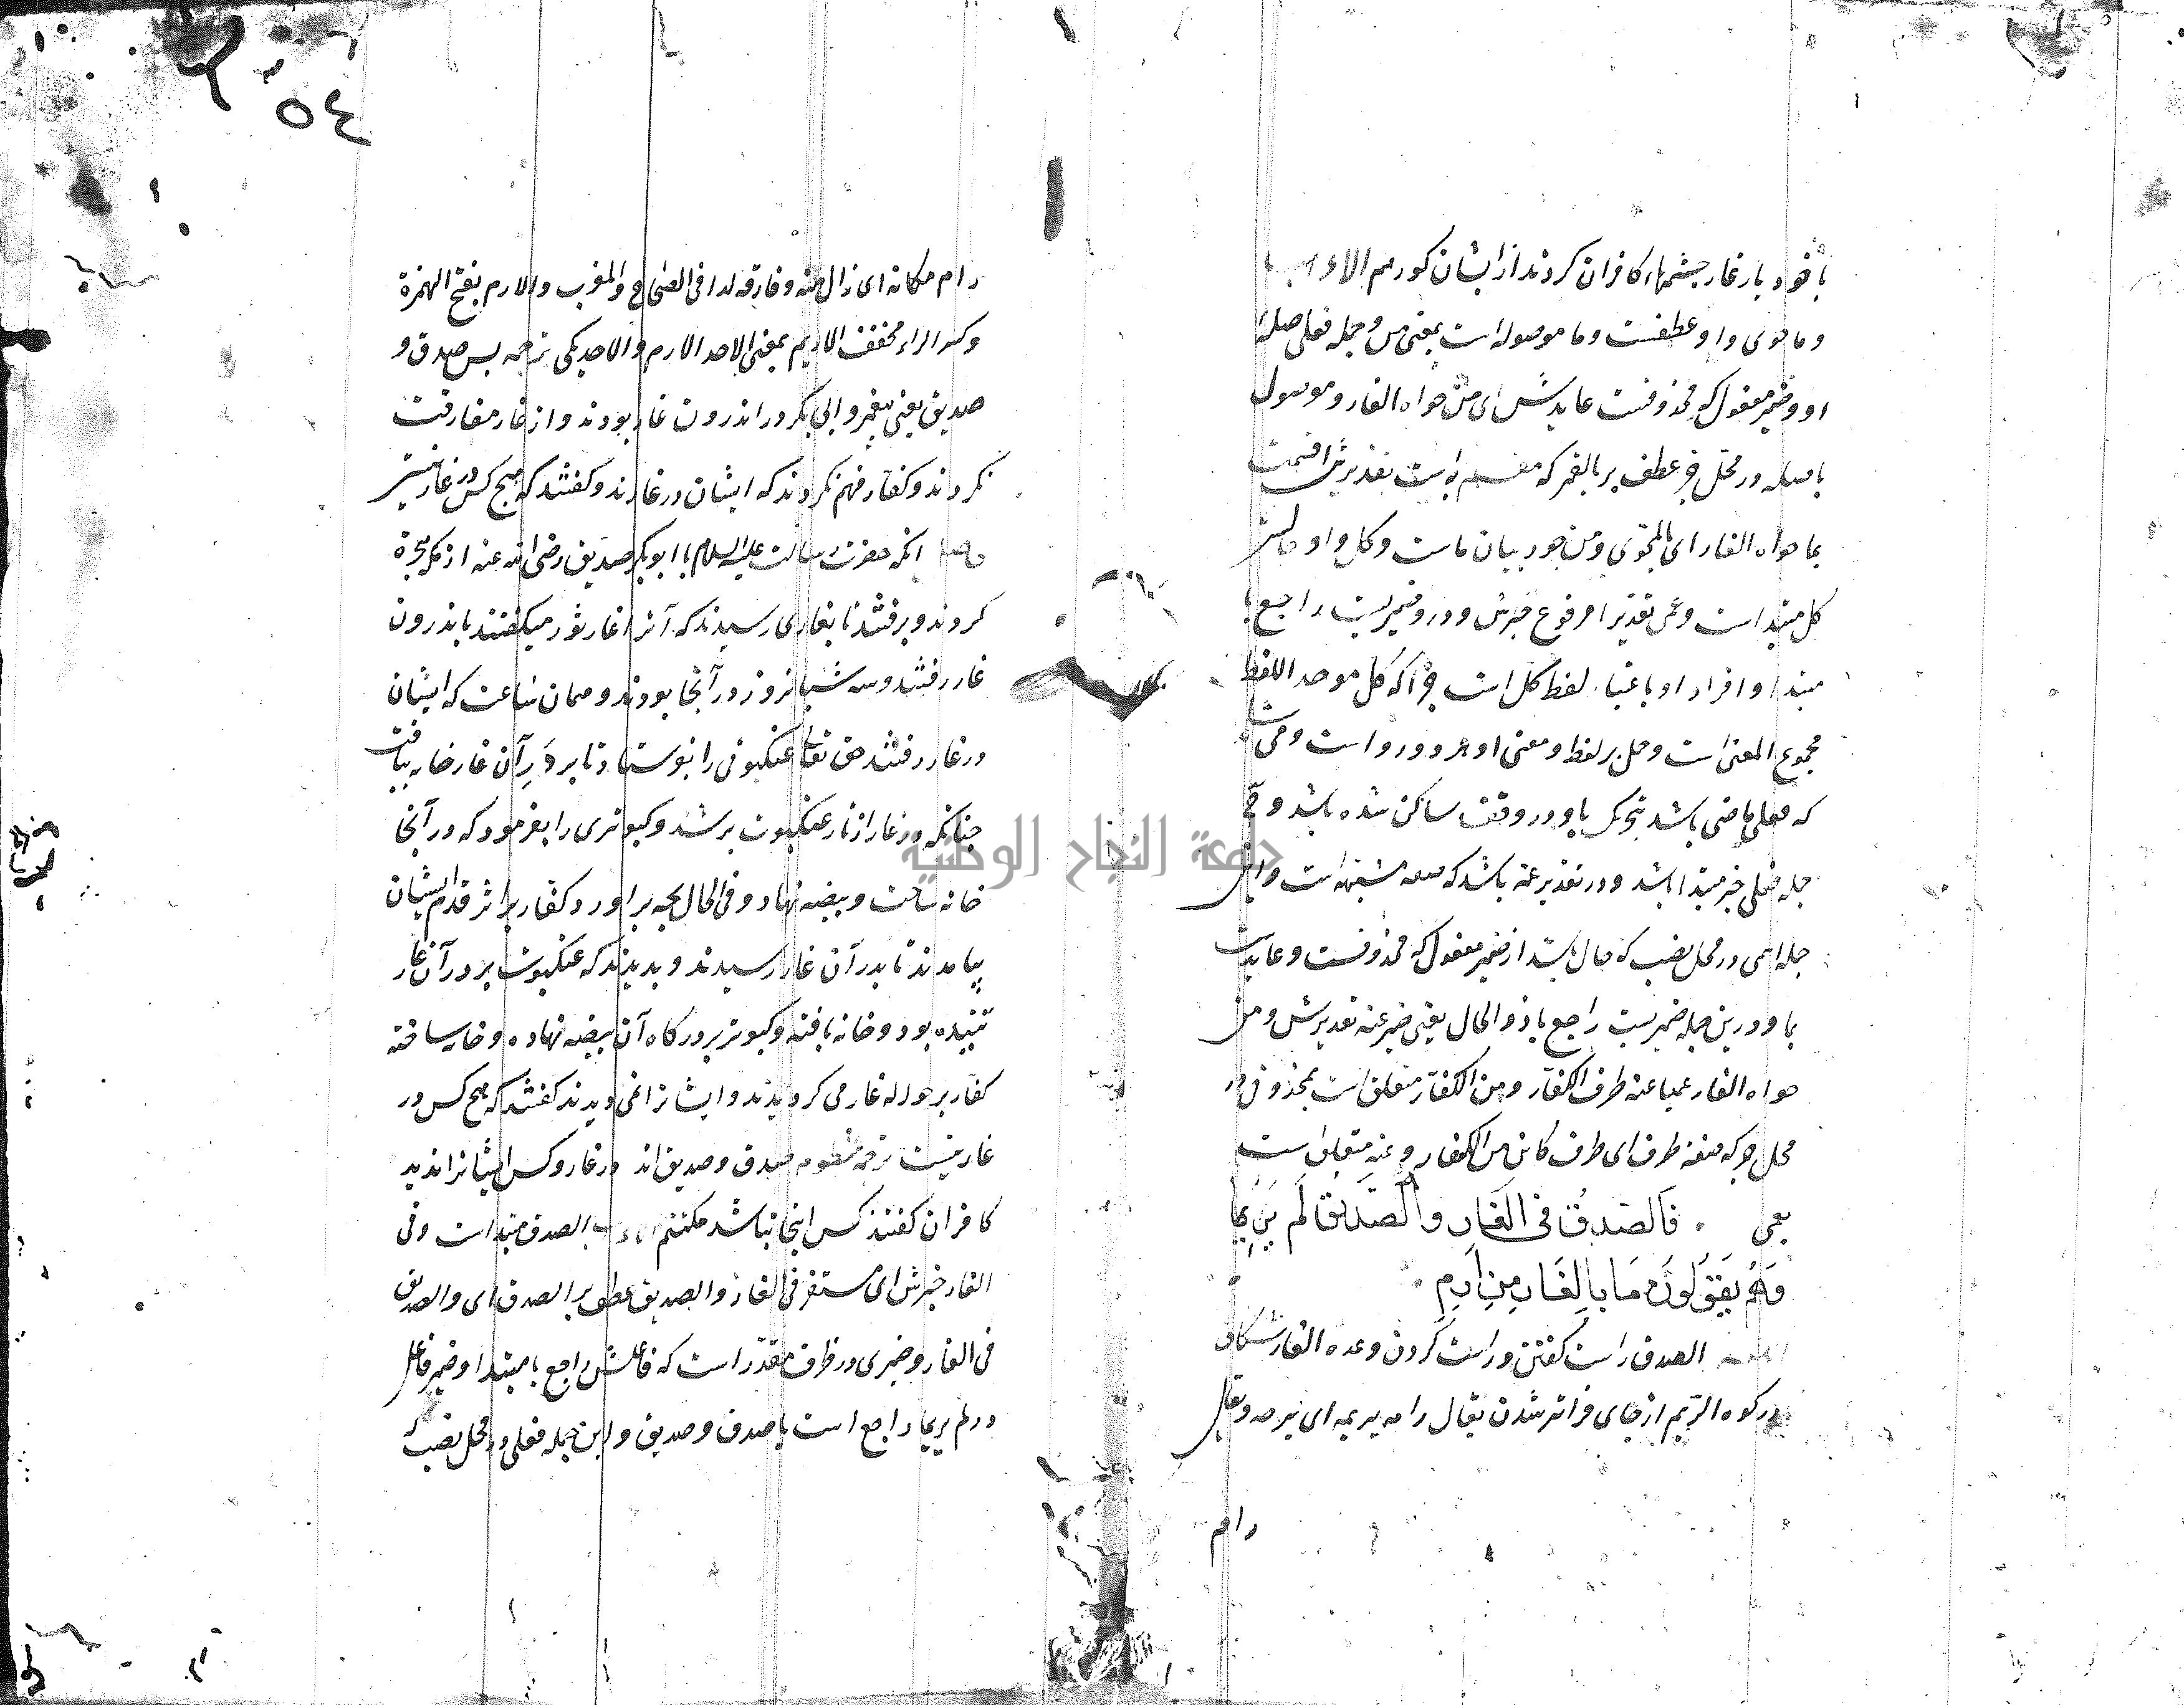 با خود یار غار چشمهاء کافران کردند از ایشان کور مم الاعراب
و ما حوی واو عطفست و ما موصوله است بمعنی من و جمله فعلی صله
او و ضمیر مفعول که محذوفست عایدش ای من حواه الغار و موصول
با صله در محل جر عطف بر بالقمر که مقسم به است بقدیرش اقسمت
بما حواه الغار ای بالمحوی و من جود بیان ماست و کل واو حالست
کل مبتداست و عمی تقدیرا مرفوع خبرش و درو ضمیریست راجع با
مبتدا و افراد او باعتبار لفظ کل است چرا که کل موحد اللفظ
مجموع المعنی است و حمل بر لفظ و معنی او هر دو رواست و می شاید
که فعلی ماضی باشد بتحریک یا و در وقف ساکن شده باشد و
جمله فعلی خبر مبتدا باشد و در تقدیر عنه باشد که صفه مشبهه است و این
جمله اسمی در محل نصب که حال باشد از ضمیر مفعول که محذوفست و عایدست
بما و درین جمله ضمیریست راجع با ذو الحال یعنی ضمیر عنه تقدیرش و من
حواه الغار عمیا عنه طرف الکفار و من الکفار متعلق است بمحذوف در
محل جر که صفة طرف ای طرف کائن من الکفار و عنه متعلق است
بعمی فَالصِّدْقُ فِی الْغَارِ وَالصِّدِّیقُ لَمْ یَرِیَمَا
وَهُمْ یَقُولُونَ مَا بِالْغَارِ مِنْ اَرِمِ
اللغه الصدق راست گفتن و راست کردن وعده الغار شکاف
در کوه الریم از جای فراتر شدن یقال رامه یریمه ای برحه و یقال
رام
٥٤
رام مکانه ای زال منه و فارقه لدا فی الصحاح و المغرب والارم بفتح الهمزة
و کسر الراء مخفف الاریم بمعنی الاحد الارم و الاحد یکی ترجمه پس صدق و
صدیق یعنی پیغمبر و ابی بکر در اندرون غار بودند و از غار مفارقت
نکردند و کفار فهم نکردند که ایشان در غارند و گفتند که هیچ کس در غار نیست
حاصل انکه حضرت رسالت علیه السلام با ابوبکر صدیق رضی الله عنه از مکه هجرة
کردند و برفتند تا بغاری رسیدند که آنرا غار ثور میگفتند باندرون
غار رفتند و سه شبانروز در آنجا بودند و همان ساعت که ایشان
در غار رفتند حق تعالی عنکبوتی را بفرستاد تا بر در آن غار خانه ببافت
چنانکه در غار از تار عنکبوت بر شد و کبوتری را بفرمود که در آنجا
خانه ساخت و بیضه نهاد و فی الحال بچه بر اورد کفار بر اثر قدم ایشان
بیامدند تا بدر آن غار رسیدند و بدیدند که عنکبوت بر در آن غار
تنیده بود و خانه بافته و کبوتر بر درگاه آن بیضه نهاده و خانه ساخته
کفار بر حواله غار می گردیدند و ایشانرا نمی دیدند گفتند که هیچ کس در
غار نیست ترجمه منظومه صدق و صدیق اند در غار و کس ایشانرا ندید
کافران گفتند کس اینجا نباشد مکتتم الاعراب الصدق مبتداست و فی
الغار خبرش ای مستقر فی الغار و الصدیق عطف بر الصدق ای و الصدیق
فی الغار و ضمیری در ظرف مقدر است که فاعلش راجع با مبتدا و ضمیر فاعل
در لم یریما راجع است با صدق و صدیق و این جمله فعلی در محل نصب که
جامعة النجاح الوطنية